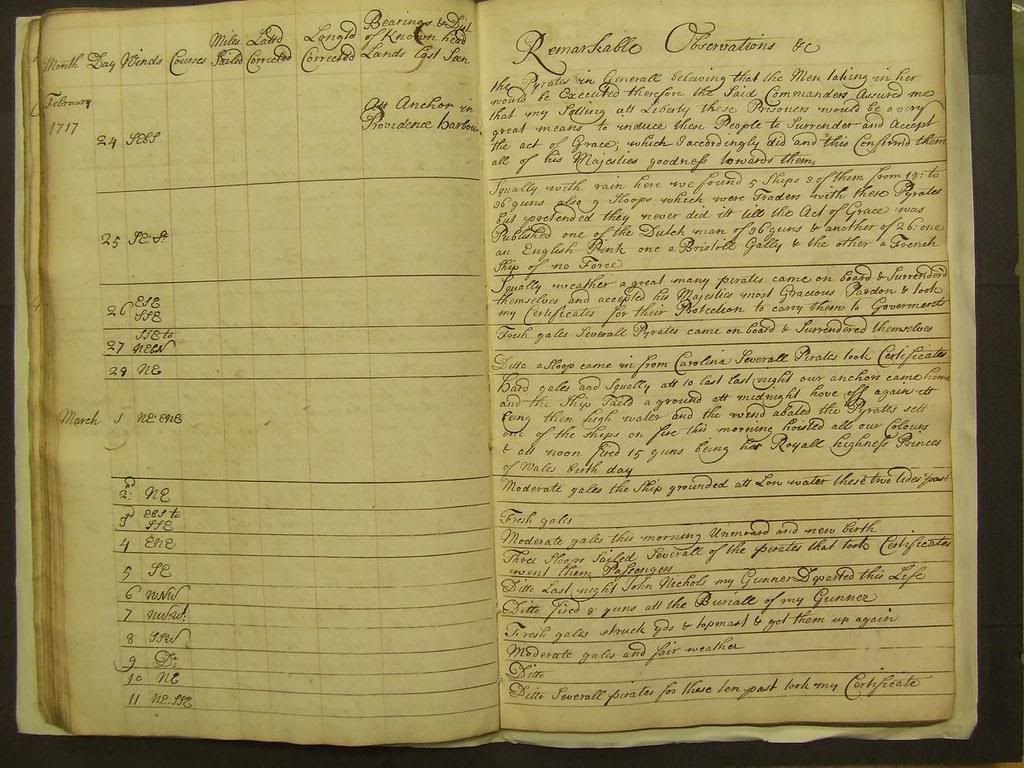 Month Day Winds Courses Miles Sailed Lattd Corrected Longtd Corrected Bearings & Dist of Known head Lands last Seen
Remarkable Observations &c
February
1717
24 SEBS
Att Anchor in
Providence harbour
the Pyrates in Generall beleiving that the Men taking in her
would be Executed therefore the Said Commanders Assured me
that my Setting att Liberty these Prisoners would be a very
great means to induce these People to Surrender and Accept
the act of Grace, which I accordingly did and this Confirmd them
all of his Majesties goodness towards them
25
Squally with rain here we found 5 Ships 3 of them from 18: to
36 guns also 9 Sloops which were Traders with these Pyrates
but pretended they never did itt till the Act of Grace was
Published one of the Dutch man of 36 guns & another of 26: one
an English Pink one a Bristoll Gally & the other a French
Ship of no Force
26 ESE
SSE
Squally weather a great many pirates came on board & Surrenderd
themselves and accepted his Majesties most Gracious Pardon & took
my Certificates for their Protection to carry them to Goverments
SSE to
27 NEBN
Fresh gales Severall Pyrates came on board & Surrendered themselves
28 NE
Ditto a Sloop came in from Carolina Severall Pirates took Certificates
March 1 NE:ENE
hard gales and Squally att 10 last last night our anchors came home
and the Ship Taild a ground att midnight hove off again itt
being then high water and the wind abated the Pyrates sett
one of the ships on fire this morning hoisted all our Colours
& att noon fired 15 guns being her Royall highness Princes
of Wales birth day
2d: NE
Moderate gales the Ship grounded att Low water these two tides past
3d EBS to
SSE
Fresh gales
4 ENE
Moderate gales this morning Unmoard and new birth
5 SE
Three Sloops Sailed Severall of the pirates that took Certificates
went them Passengers
6 WNW
Ditto Last night John Nichols my Gunner Departed this Life
7
Ditto fired 8 guns att the Buriall of my Gunner
8 SSW
Fresh gales struck yds & topmast & got them up again
9 Do
Moderate gales and fair weather
10 NE
Ditto
11 NE:SSE
Ditto Severall pirates for these ten past took my Certificate